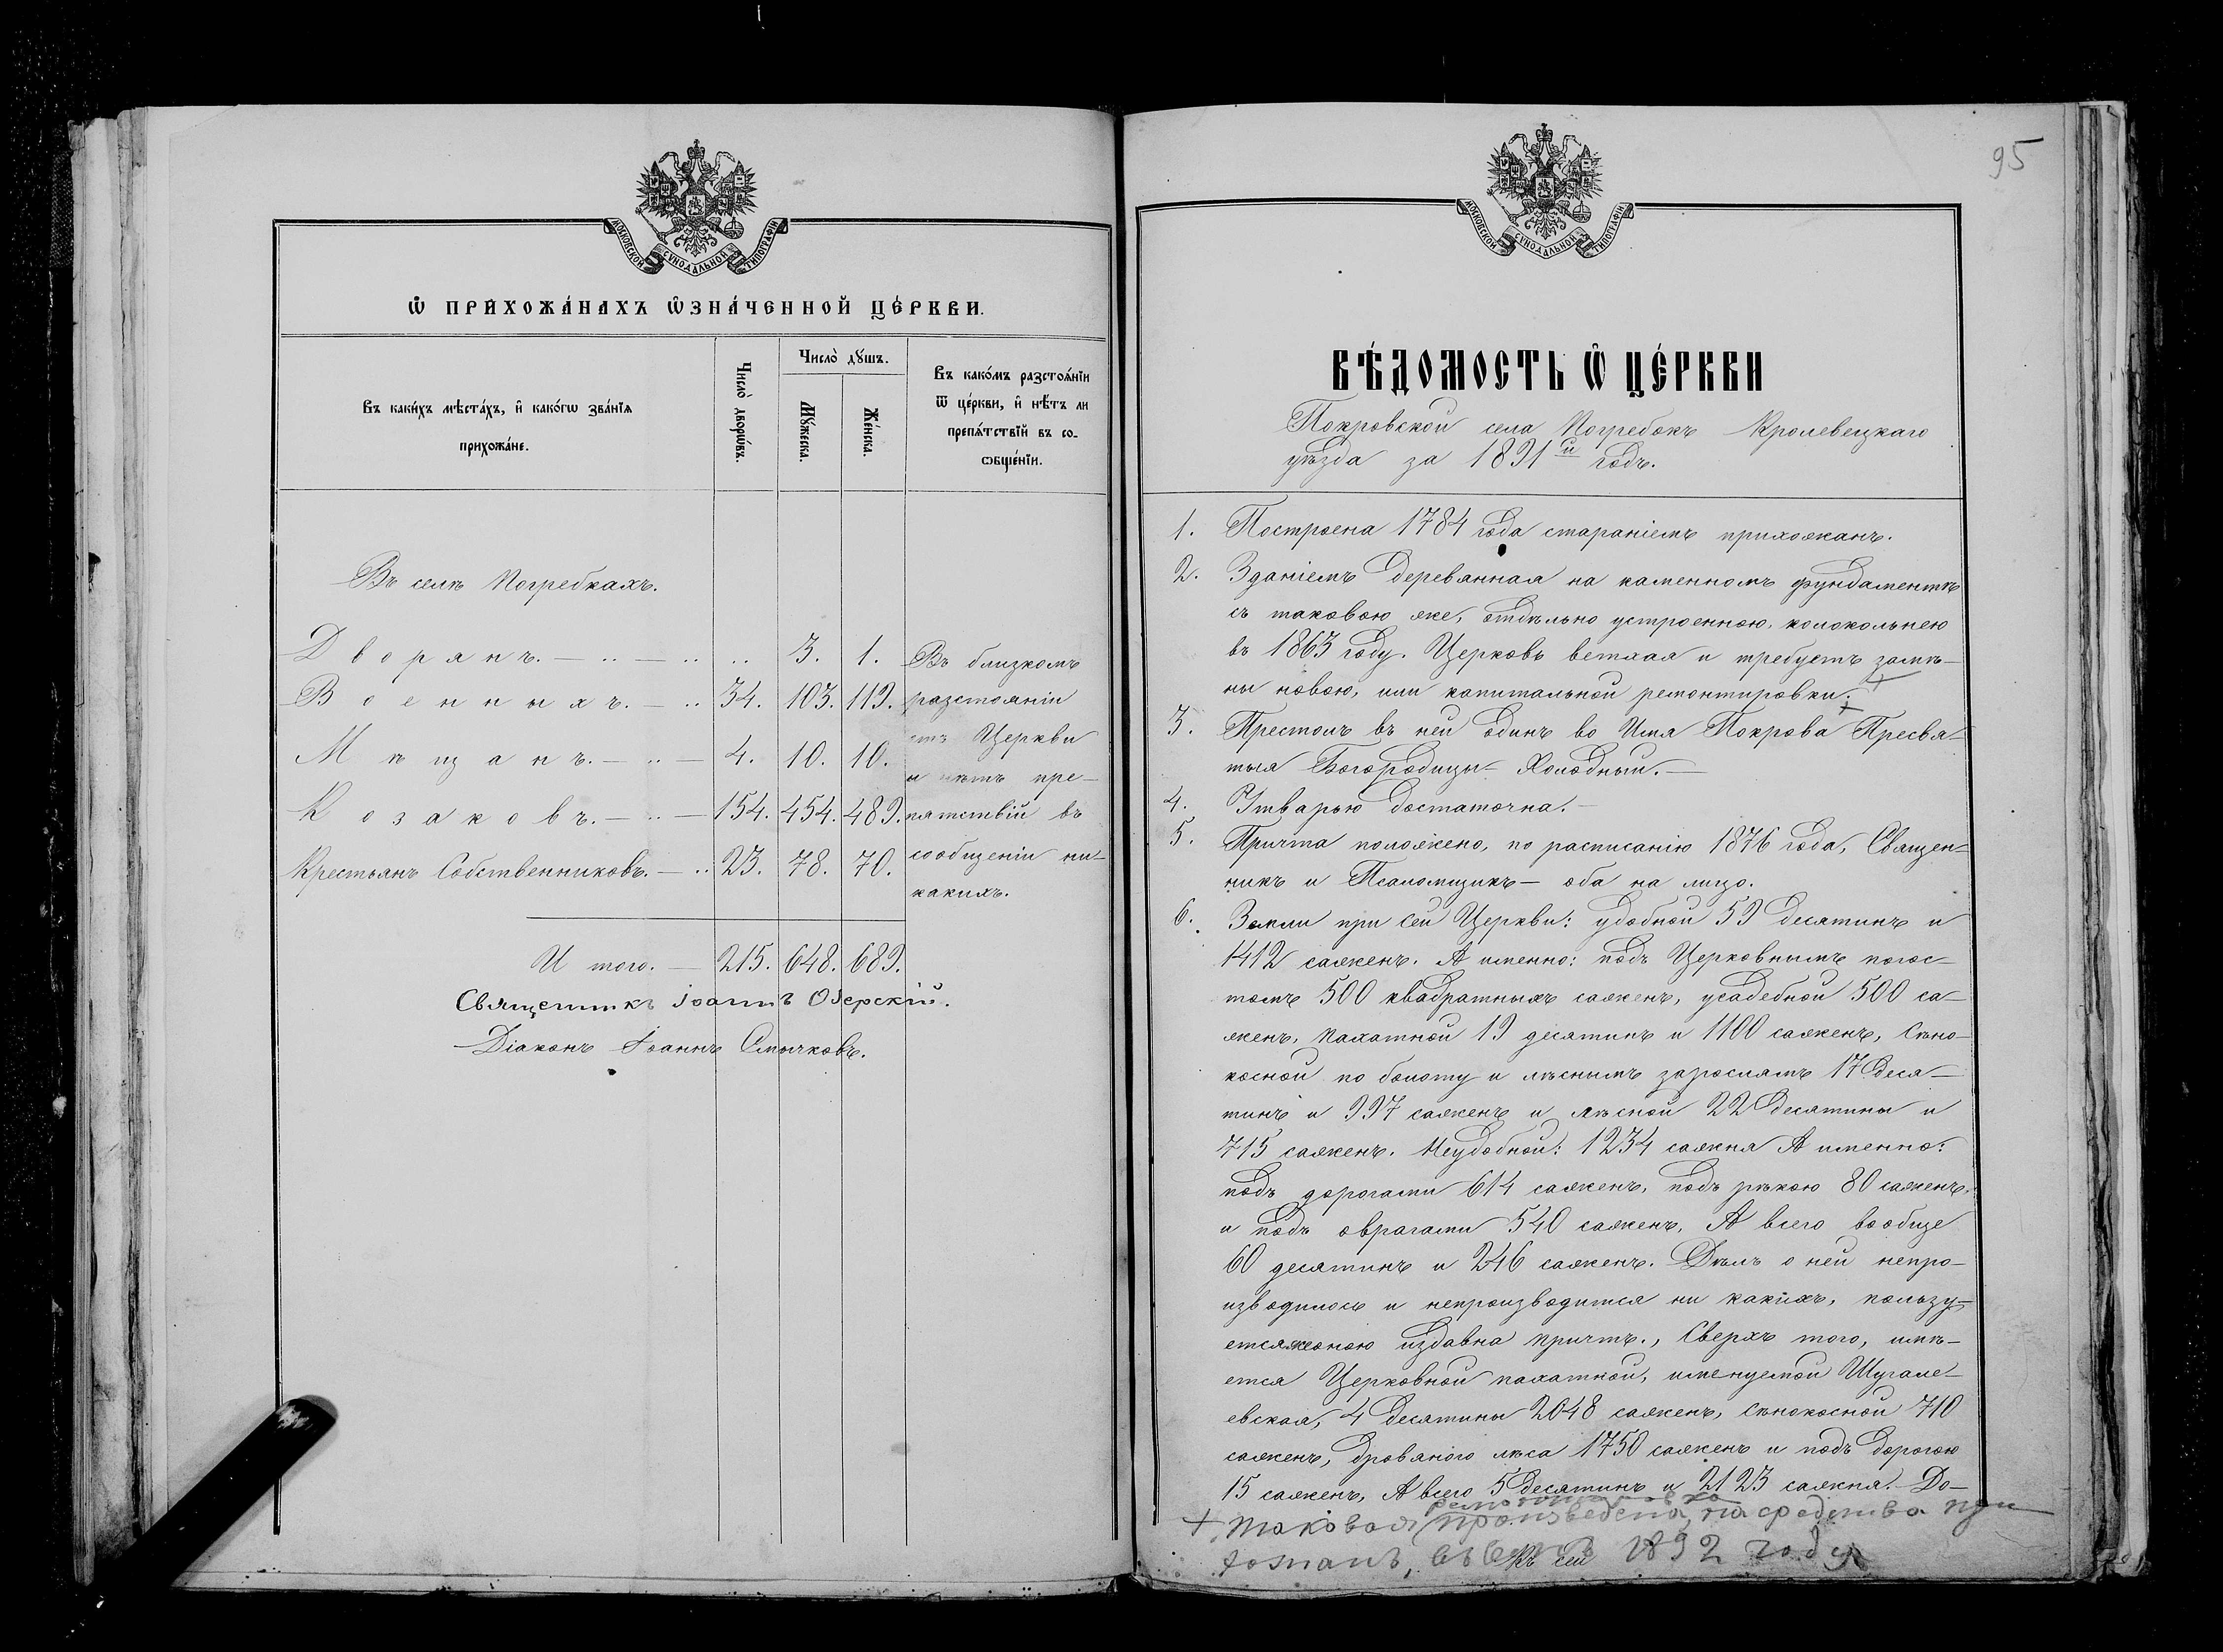 МОСКОВСКОЙ СѴНОДАЛЬНОЙ ТИПОГРАФІИ
Ѽ ПРИХОЖА́НАХЪ Ѡ҆ЗНА́ЧЕННОЙ ЦЕ́РКВИ.
Въ каки́хъ мѣста́хъ, и҆ како́гѡ зва́нїѧ прихожа́не.
Число̀ дворѡ́въ.
Число̀ дꙋшъ.
Мꙋ́жеска.
Же́нска.
Въ како́мъ разстоѧ́нїи
ѿ це́ркви, и҆ нѣ́тъ ли
препѧ́тствїй въ со-
ѡбще́нїи.
Въ селѣ Погребкахъ.
Дворянъ. — .. — .. .. 3. 1.
Военныхъ. — .. 34. 103. 119.
Мѣщанъ. — .. — 4. 10. 10.
Козаковъ. — .. — 154. 454. 489.
Крестьянъ Собственниковъ. — .. 23. 78. 70.
Въ близкомъ
разстояніи
отъ Церкви
и нѣтъ пре-
пятствій въ
сообщеніи ни-
какихъ.
И того. — 215. 648. 689.
Священникъ Іоаннъ Озерскій.
Діаконъ Іоаннъ Смычковъ.
95
МОСКОВСКОЙ СѴНОДАЛЬНОЙ ТИПОГРАФІИ
ВѢ́ДОМОСТЬ Ѽ ЦЕ́РКВИ
Покровской села Погребокъ Кролевецкаго
уѣзда за 1891й годъ.
1. Построена 1784 года стараніемъ прихожанъ.
2. Зданіемъ деревянная на каменномъ фундаментѣ
съ таковою же, отдѣльно устроенною, колокольнею
въ 1863 году. Церковь ветхая и требуетъ замѣ-
ны новою, или капитальной ремонтировки. +
3. Престолъ въ ней одинъ во Имя Покрова Пресвя-
тыя Богородицы — Холодный. —
4. Утварью достаточна. —
5. Причта положено, по расписанію 1876 года, Священ-
никъ и Псаломщикъ — оба на лицо.
6. Земли при сей Церкви: удобной 59 десятинъ и
1412 саженъ. А именно: подъ Церковнымъ погос-
томъ 500 квадратныхъ саженъ, усадебной 500 са-
женъ, пахатной 19 десятинъ и 1100 саженъ, сѣно-
косной по болоту и лѣснымъ зарослямъ 17 деся-
тинъ и 997 саженъ и лѣсной 22 десятины и
715 саженъ. Неудобной: 1234 сажня А именно:
подъ дорогами 614 саженъ, подъ рѣкою 80 саженъ,
и подъ оврагами 540 саженъ, А всего вообще
60 десятинъ и 246 саженъ. Дѣлъ о ней непро-
изводилось и непроизводится ни какихъ, пользу-
ется же оною издавна причтъ., Сверхъ того, имѣ-
ется Церковной пахатной, именуемой Шугале-
евская, 4 десятины 2048 саженъ, сѣнокосной 710
саженъ, дровяного лѣса 1750 саженъ и подъ дорогою
15 саженъ, А всего 5 десятинъ и 2123 сажня. — До-
+ таковая ремонтировка произведена, на средства при
хожанъ, въ 1892 году
Къ сей